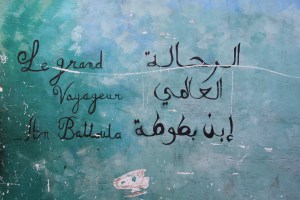 Le grand الرحالة
Voyageur العالمي
Ibn Battuta إبن بطوطة